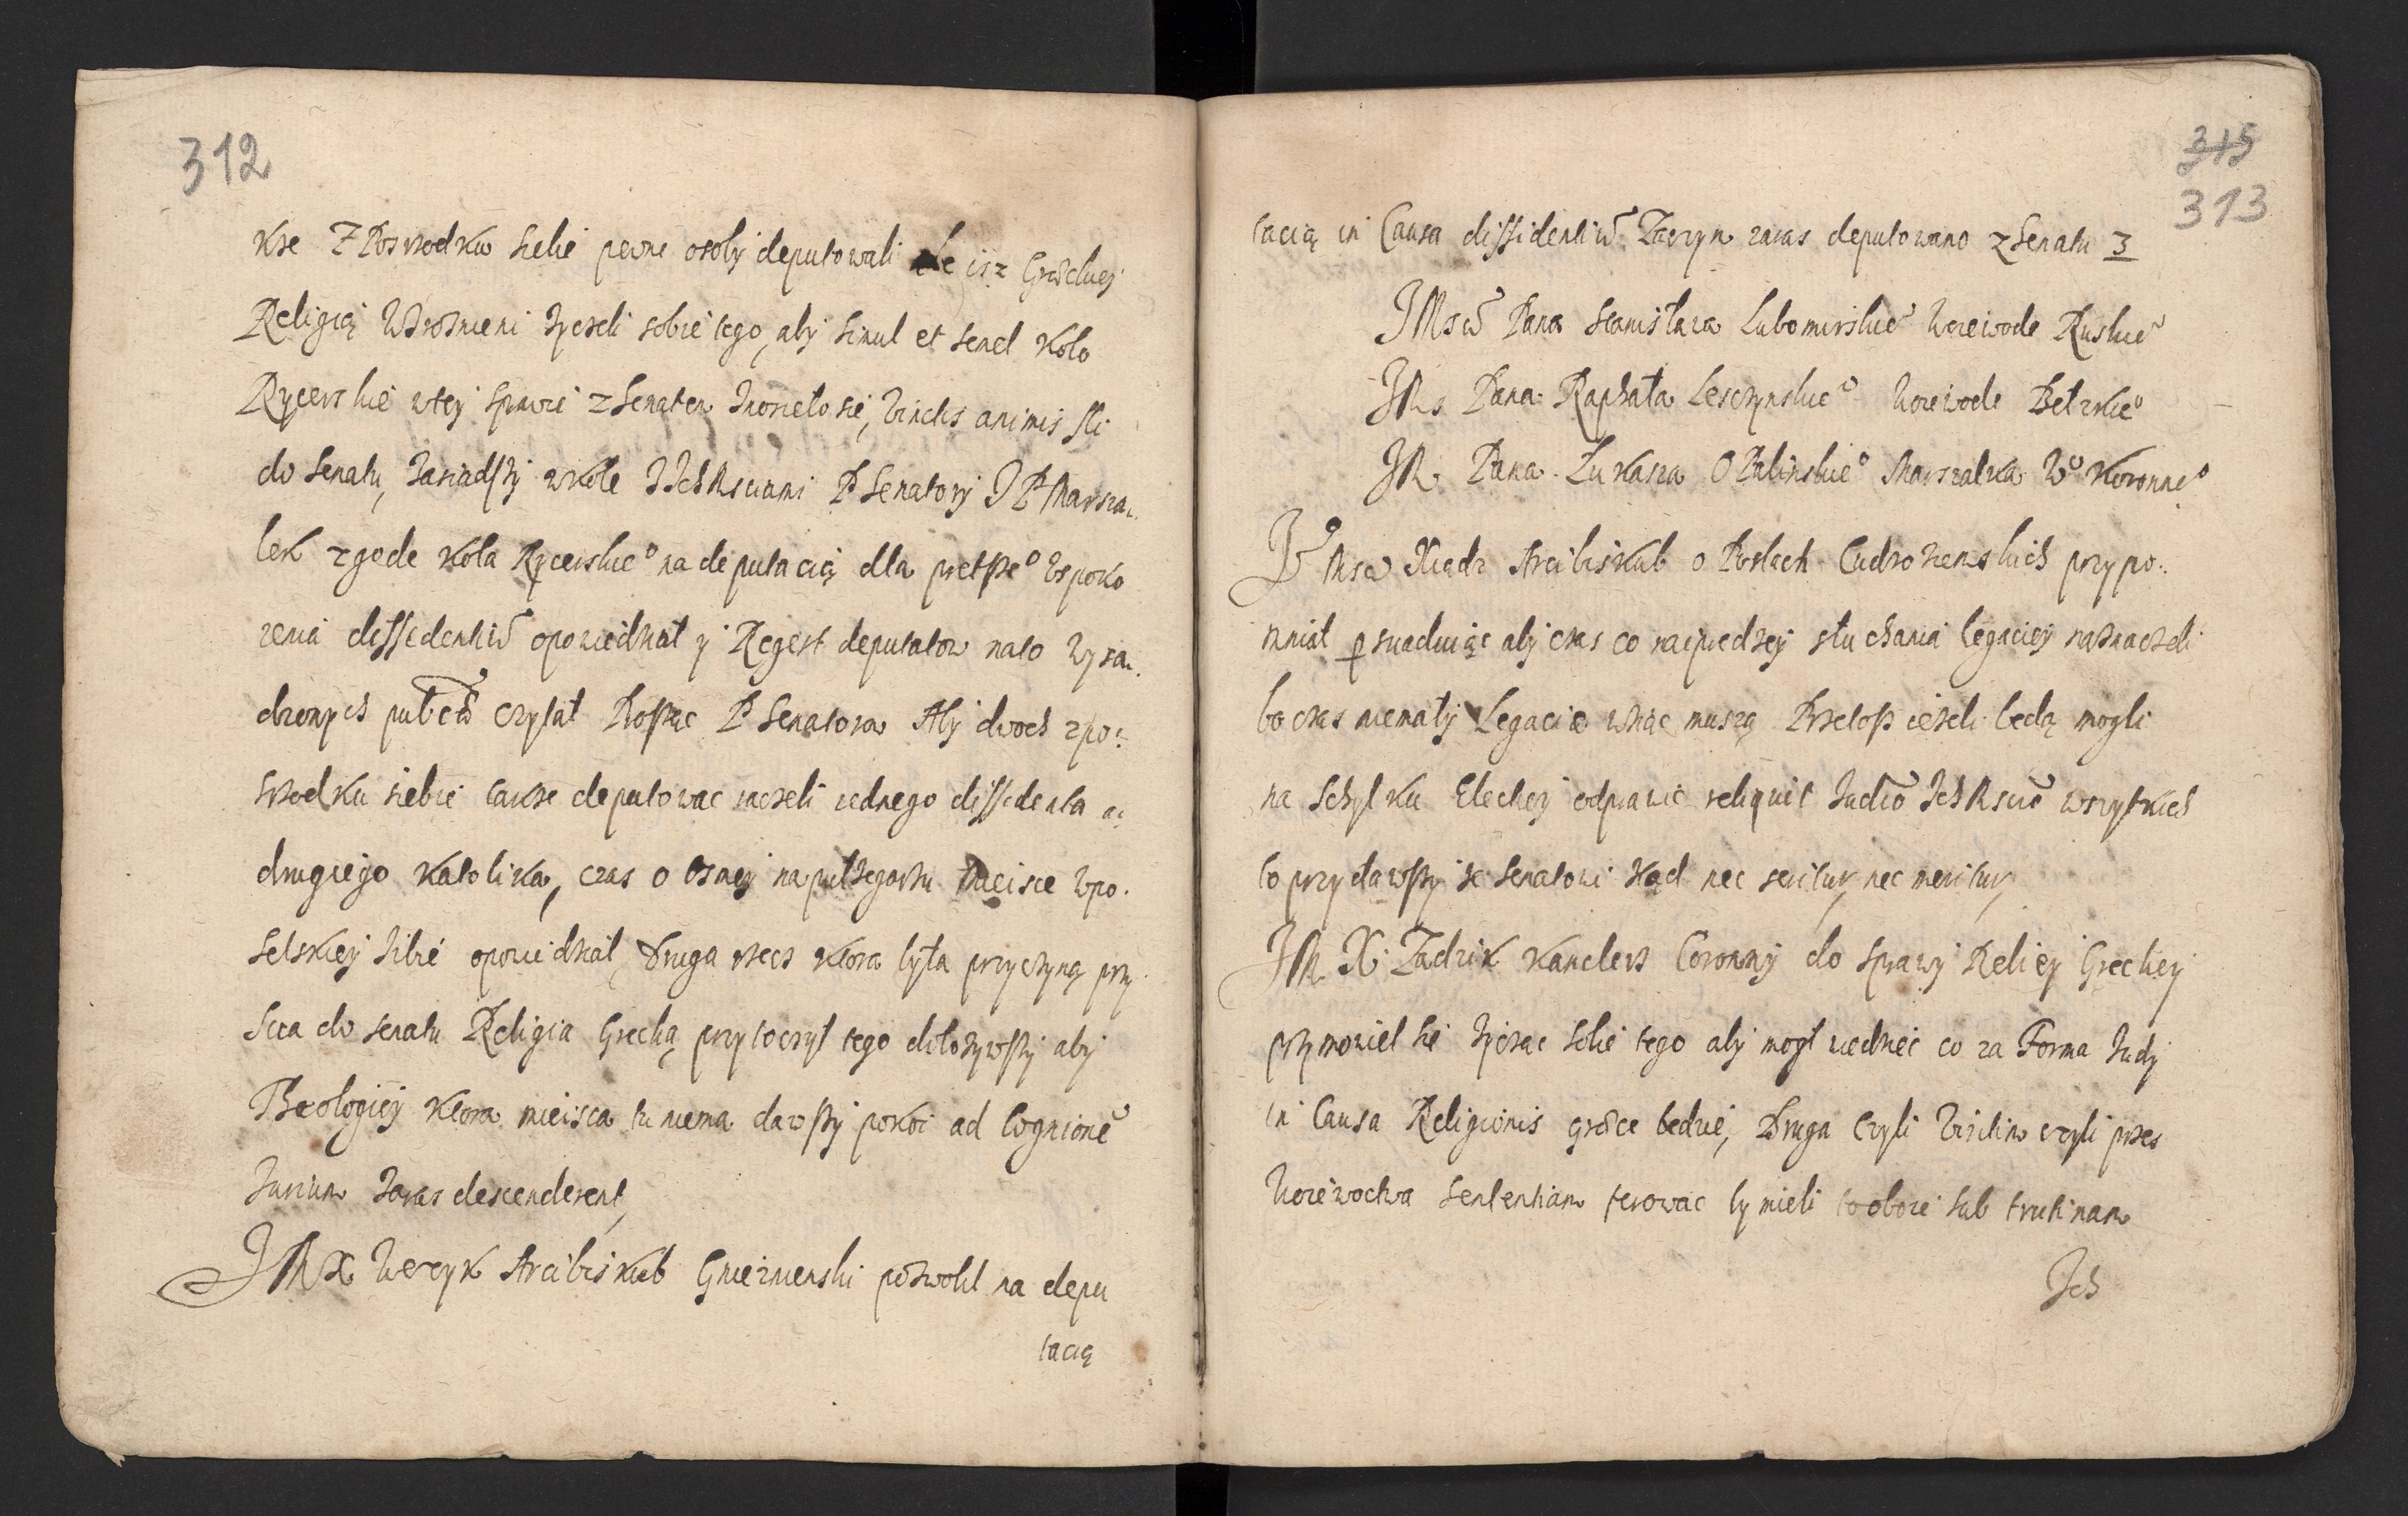 312
kze Z Posrzodku siebie pewne osoby deputowali ale isz Graeckiey
Religiej Wzroznieni życzeli sobie tego, aby simul et semel Koło
Rycerskie w tey sprawie z Senatem znosieło sie, vinctis animis szli
do Senatu, Zasiadszy w kole Ich Msciami P Senatory J P Marsza-
lek zgode Koła Rycerskieº na deputacią dla prętszeº Uspoko
ienia dissidentiu opowiedział y Regest deputatow na to Wysa-
dzonych publice czytał Prosząc P Senatorow Aby dwoch z po-
srzodku siebie także deputowac raczeli iednego dissidenta a
drugiego Katolika, czas o osmey na pułzegarzu mieisce w po-
selskiey Izbie opowiedział, Druga rzecz ktora była przyczyną przy
scia do senatu Religia Grecką przytoczył tego dołożywszy aby
Theologiey ktora mieisca tu niema dawszy pokoi ad Cognitione
Iurium Zaras descenderent,
J M X Wezyk Arcibiskub Gnieznienski pozwolił na depu
tacią
315
313
tacią in Causa dissidentiu Zaczym zaras deputowano z Senatu 3
J Mscia Pana Stanisława Lubomirskieº Woiewode Ruskieº
J Ms Pana Raphała Lesczynskieº Woiewode Bełzkieº
J M Pana Łukasza Opalinskieº Marszalka Wº Koronneº
Jº Mscia Xiądz Arcibiskub o Posłach Cudzoziemskich przypo-
mniał persuaduiąc aby czas co napredzey słuchania legaciey naznaczeli
bo czas niemały Legacie wziąc muszą Przetosz ieżeli będą mogli
na Schyłku Elekciey odprawic reliquit Iudicio Ich Mscio wszystkich
to przydawszy że Senatowi stąd nec seritur, nec meritur,
J M X Zadzik Kanclerz Coronny do sprawy Religiey Greckiey
przymowieł sie życząc sobie tego aby mogł wiedziec co za Forma Sądy
in Causa Religionis graece bedzie, Druga Czyli Viritim czyli przes
Woiewoctwa Sententiam ferowac by mieli to oboie sub trutinam
Ich